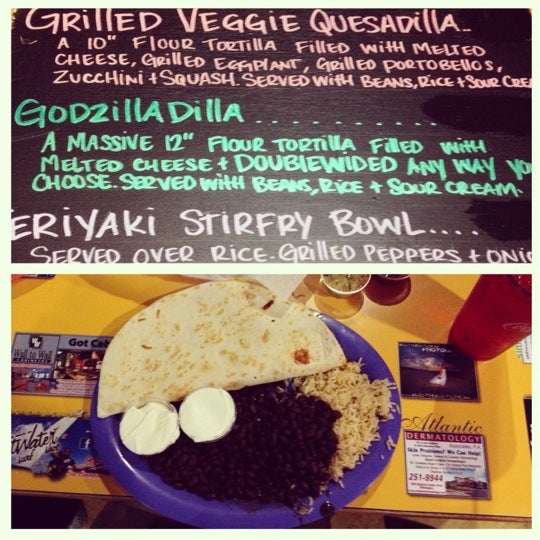 GRILLED VEGGIE QUESADILLA..
A 10" FLOUR TORTILLA FILLED WITH MELTED
CHEESE, GRILLED EGGPLANT, GRILLED PORTOBELLOS,
ZUCCHINI + SQUASH. SERVED WITH BEANS, RICE + SOUR CREA
GODZILLADILLA ..............
A MASSIVE 12" FLOUR TORTILLA FILLED WITH
MELTED CHEESE + DOUBLEWIDED ANY WAY YO
CHOOSE. SERVED WITH BEANS, RICE + SOUR CREAM.
ERIYAKI STIRFRY BOWL....
SERVED OVER RICE. GRILLED PEPPERS + ONIO
Wall to Wall
Got Cab
Water
Atlantic
DERMATOLOGY
Associates, P.A.
Skin Problems? We Can Help!
251-9944